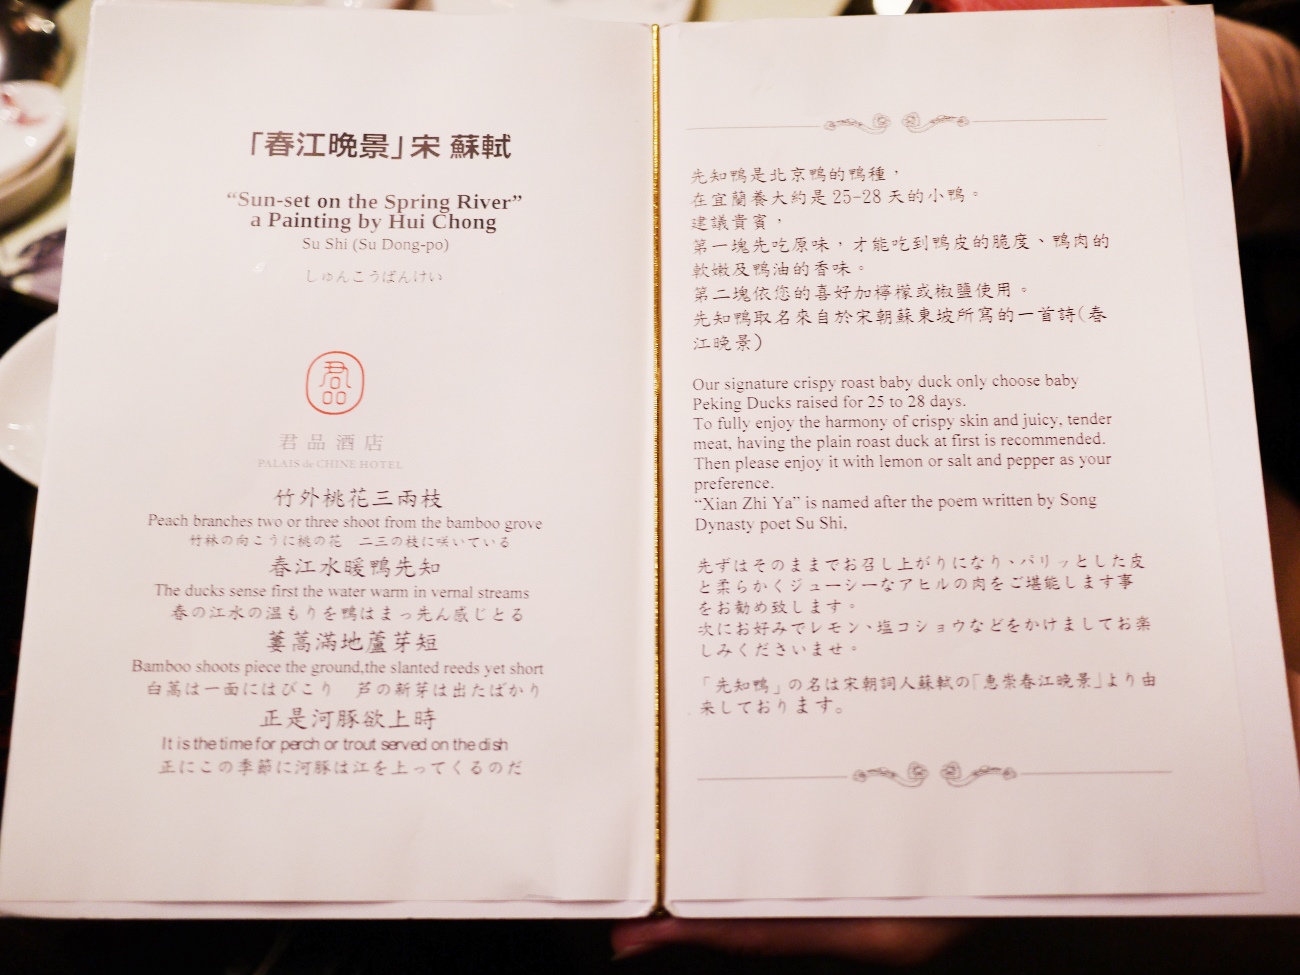 「春江晚景」宋 蘇軾
“Sun-set on the Spring River”
a Painting by Hui Chong
Su Shi (Su Dong-po)
しゅんこうばんけい
君品
君品酒店
PALAIS de CHINE HOTEL
竹外桃花三兩枝
Peach branches two or three shoot from the bamboo grove
竹林の向こうに桃の花　二三の枝に咲いている
春江水暖鴨先知
The ducks sense first the water warm in vernal streams
春の江水の温もりを鴨はまっ先ん感じとる
蔞蒿滿地蘆芽短
Bamboo shoots piece the ground,the slanted reeds yet short
白蒿は一面にはびこり　芦の新芽は出たばかり
正是河豚欲上時
It is the time for perch or trout served on the dish
正にこの季節に河豚は江を上ってくるのだ
先知鴨是北京鴨的鴨種，
在宜蘭養大約是 25-28 天的小鴨。
建議貴賓，
第一塊先吃原味，才能吃到鴨皮的脆度、鴨肉的
軟嫩及鴨油的香味。
第二塊依您的喜好加檸檬或椒鹽使用。
先知鴨取名來自於宋朝蘇東坡所寫的一首詩(春
江晚景)
Our signature crispy roast baby duck only choose baby
Peking Ducks raised for 25 to 28 days.
To fully enjoy the harmony of crispy skin and juicy, tender
meat, having the plain roast duck at first is recommended.
Then please enjoy it with lemon or salt and pepper as your
preference.
“Xian Zhi Ya” is named after the poem written by Song
Dynasty poet Su Shi.
先ずはそのままでお召し上がりになり、パリッとした皮
と柔らかくジューシーなアヒルの肉をご堪能します事
をお勧め致します。
次にお好みでレモン、塩コショウなどをかけましてお楽
しみくださいませ。
「先知鴨」の名は宋朝詞人蘇軾の「恵崇春江晚景」より由
来しております。